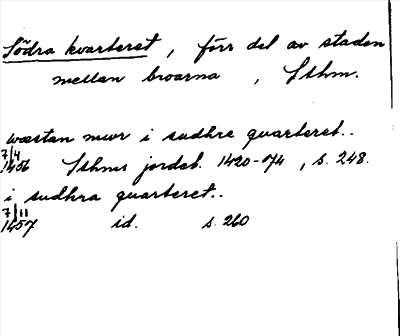 Södra kvarteret, förr del av staden
mellan broarna, Sthm.
wæstan mwr i sudhre quarteret..
7/4 1456 Sthms jordeb. 1420-74, s. 248.
i sudhra quarteret..
7/11 1457 id. s. 260